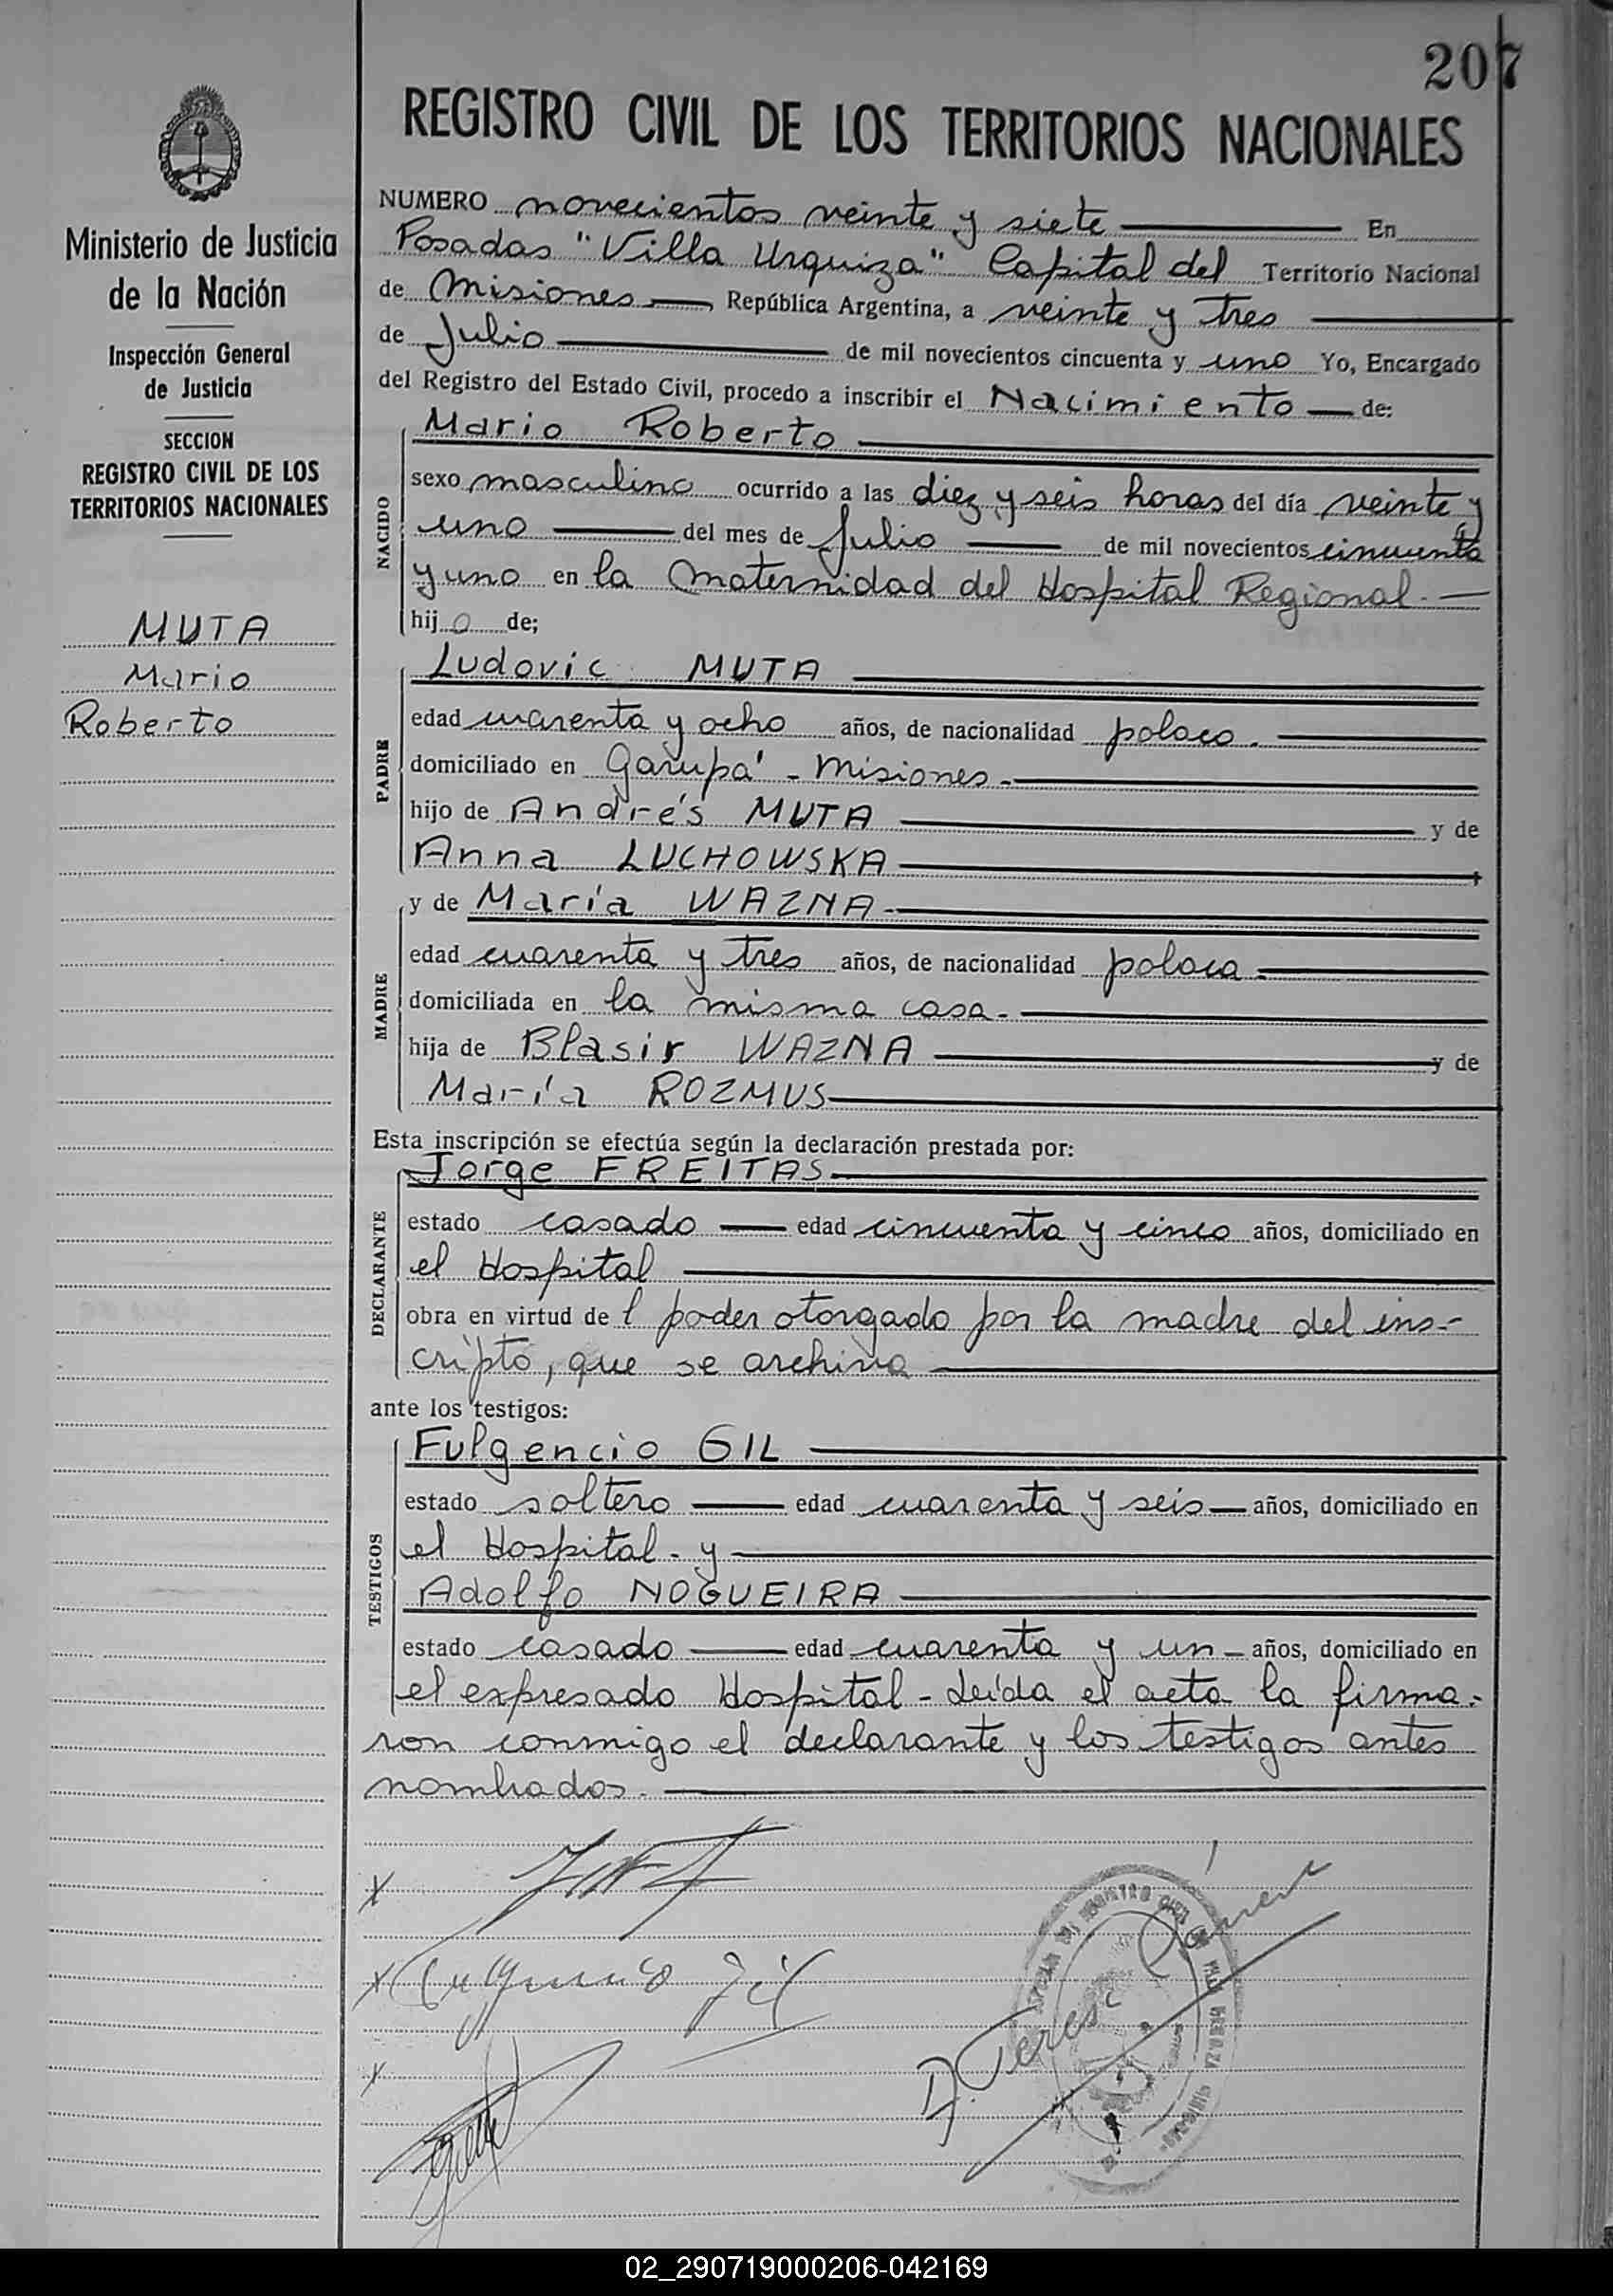 207
REGISTRO CIVIL DE LOS TERRITORIOS NACIONALES
Ministerio de Justicia
de la Nación
Inspección General
de Justicia
SECCION
REGISTRO CIVIL DE LOS
TERRITORIOS NACIONALES
MUTA
Mario
Roberto
NUMERO novecientos veinte y siete En
Posadas "Villa Urquiza" Capital del Territorio Nacional
de Misiones, República Argentina, a veinte y tres
de Julio de mil novecientos cincuenta y uno Yo, Encargado
del Registro del Estado Civil, procedo a inscribir el Nacimiento de:
Mario Roberto
NACIDO
sexo masculino ocurrido a las diez y seis horas del día veinte y
uno del mes de Julio de mil novecientos cincuenta
y uno en la Maternidad del Hospital Regional.
hijo de;
PADRE
Ludovic MUTA
edad cuarenta y ocho años, de nacionalidad polaco.
domiciliado en Garupá - Misiones.
hijo de Andrés MUTA y de
Anna LUCHOWSKA
MADRE
y de María WAZNA.
edad cuarenta y tres años, de nacionalidad polaca.
domiciliada en la misma casa.
hija de Blasir WAZNA y de
María ROZMUS
Esta inscripción se efectúa según la declaración prestada por:
DECLARANTE
Jorge FREITAS
estado casado edad cincuenta y cinco años, domiciliado en
el Hospital
obra en virtud del poder otorgado por la madre del ins-
cripto, que se archiva
ante los testigos:
TESTIGOS
Fulgencio GIL
estado soltero edad cuarenta y seis años, domiciliado en
el Hospital - y
Adolfo NOGUEIRA
estado casado edad cuarenta y un años, domiciliado en
el expresado Hospital - Leída el acta la firma-
ron conmigo el declarante y los testigos antes
nombrados.
02_290719000206-042169